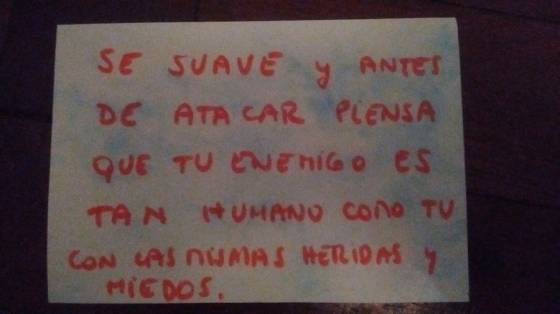 SE SUAVE y ANTES
DE ATACAR PIENSA
QUE TU ENEMIGO ES
TAN HUMANO COMO TU
CON LAS MISMAS HERIDAS y
MIEDOS.